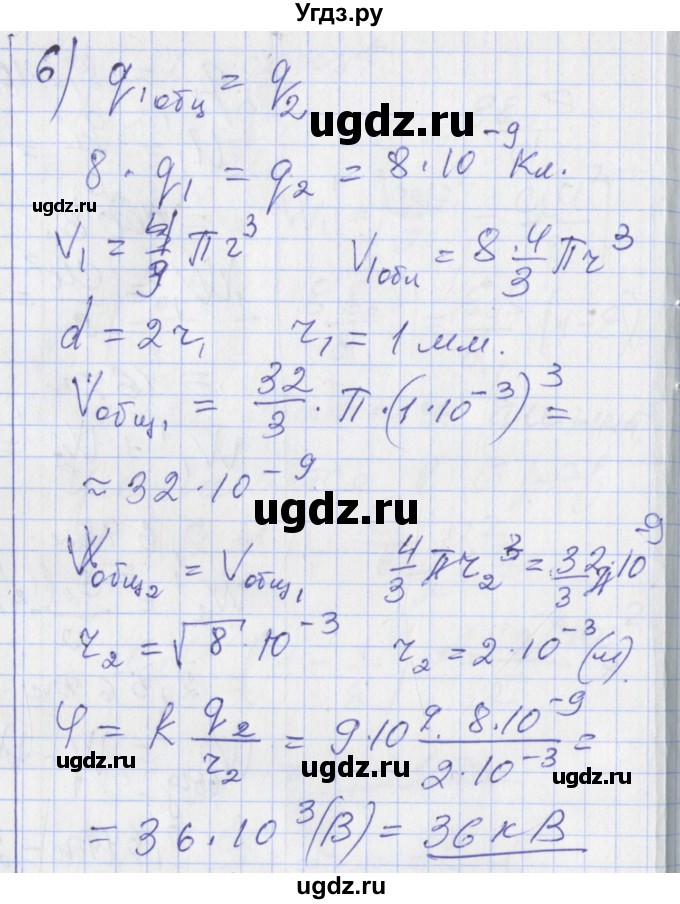 Угдз.ру
6) q₁общ = q₂
ugdz.ru
8 · q₁ = q₂ = 8·10⁻⁹ Кл.
ugdz.ru
V₁ = 4/3 πr³ V₁обл = 8·4/3 πr³
d = 2r₁ r₁ = 1 мм.
Vобщ₁ = 32/3 · π · (1·10⁻³)³ =
≈ 32·10⁻⁹
ugdz.ru
Vобщ₂ = Vобщ₁ 4/3 πr₂³ = 32/3 π·10⁻⁹
r₂ = √8·10⁻³ r₂ = 2·10⁻³ (м).
φ = k q₂/r₂ = 9·10⁹· 8·10⁻⁹/2·10⁻³ =
ugdz.ru ugdz.ru ugdz.ru
= 36·10³(В) = 36 кВ
ugdz.ru